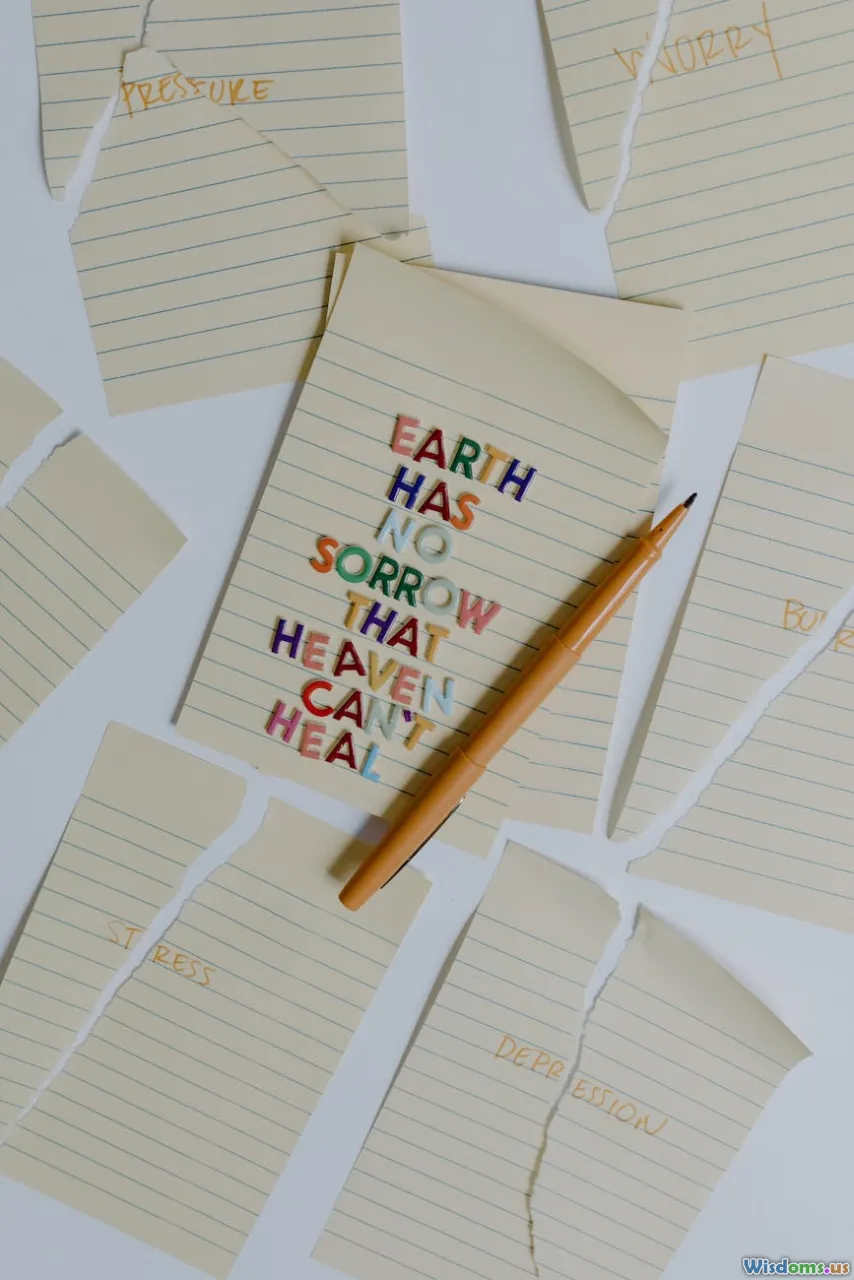 PRESSURE
WORRY
EARTH
HAS
NO
SORROW
THAT
HEAVEN
CAN'T
HEAL
STRESS
DEPRESSION
Wisdoms.us